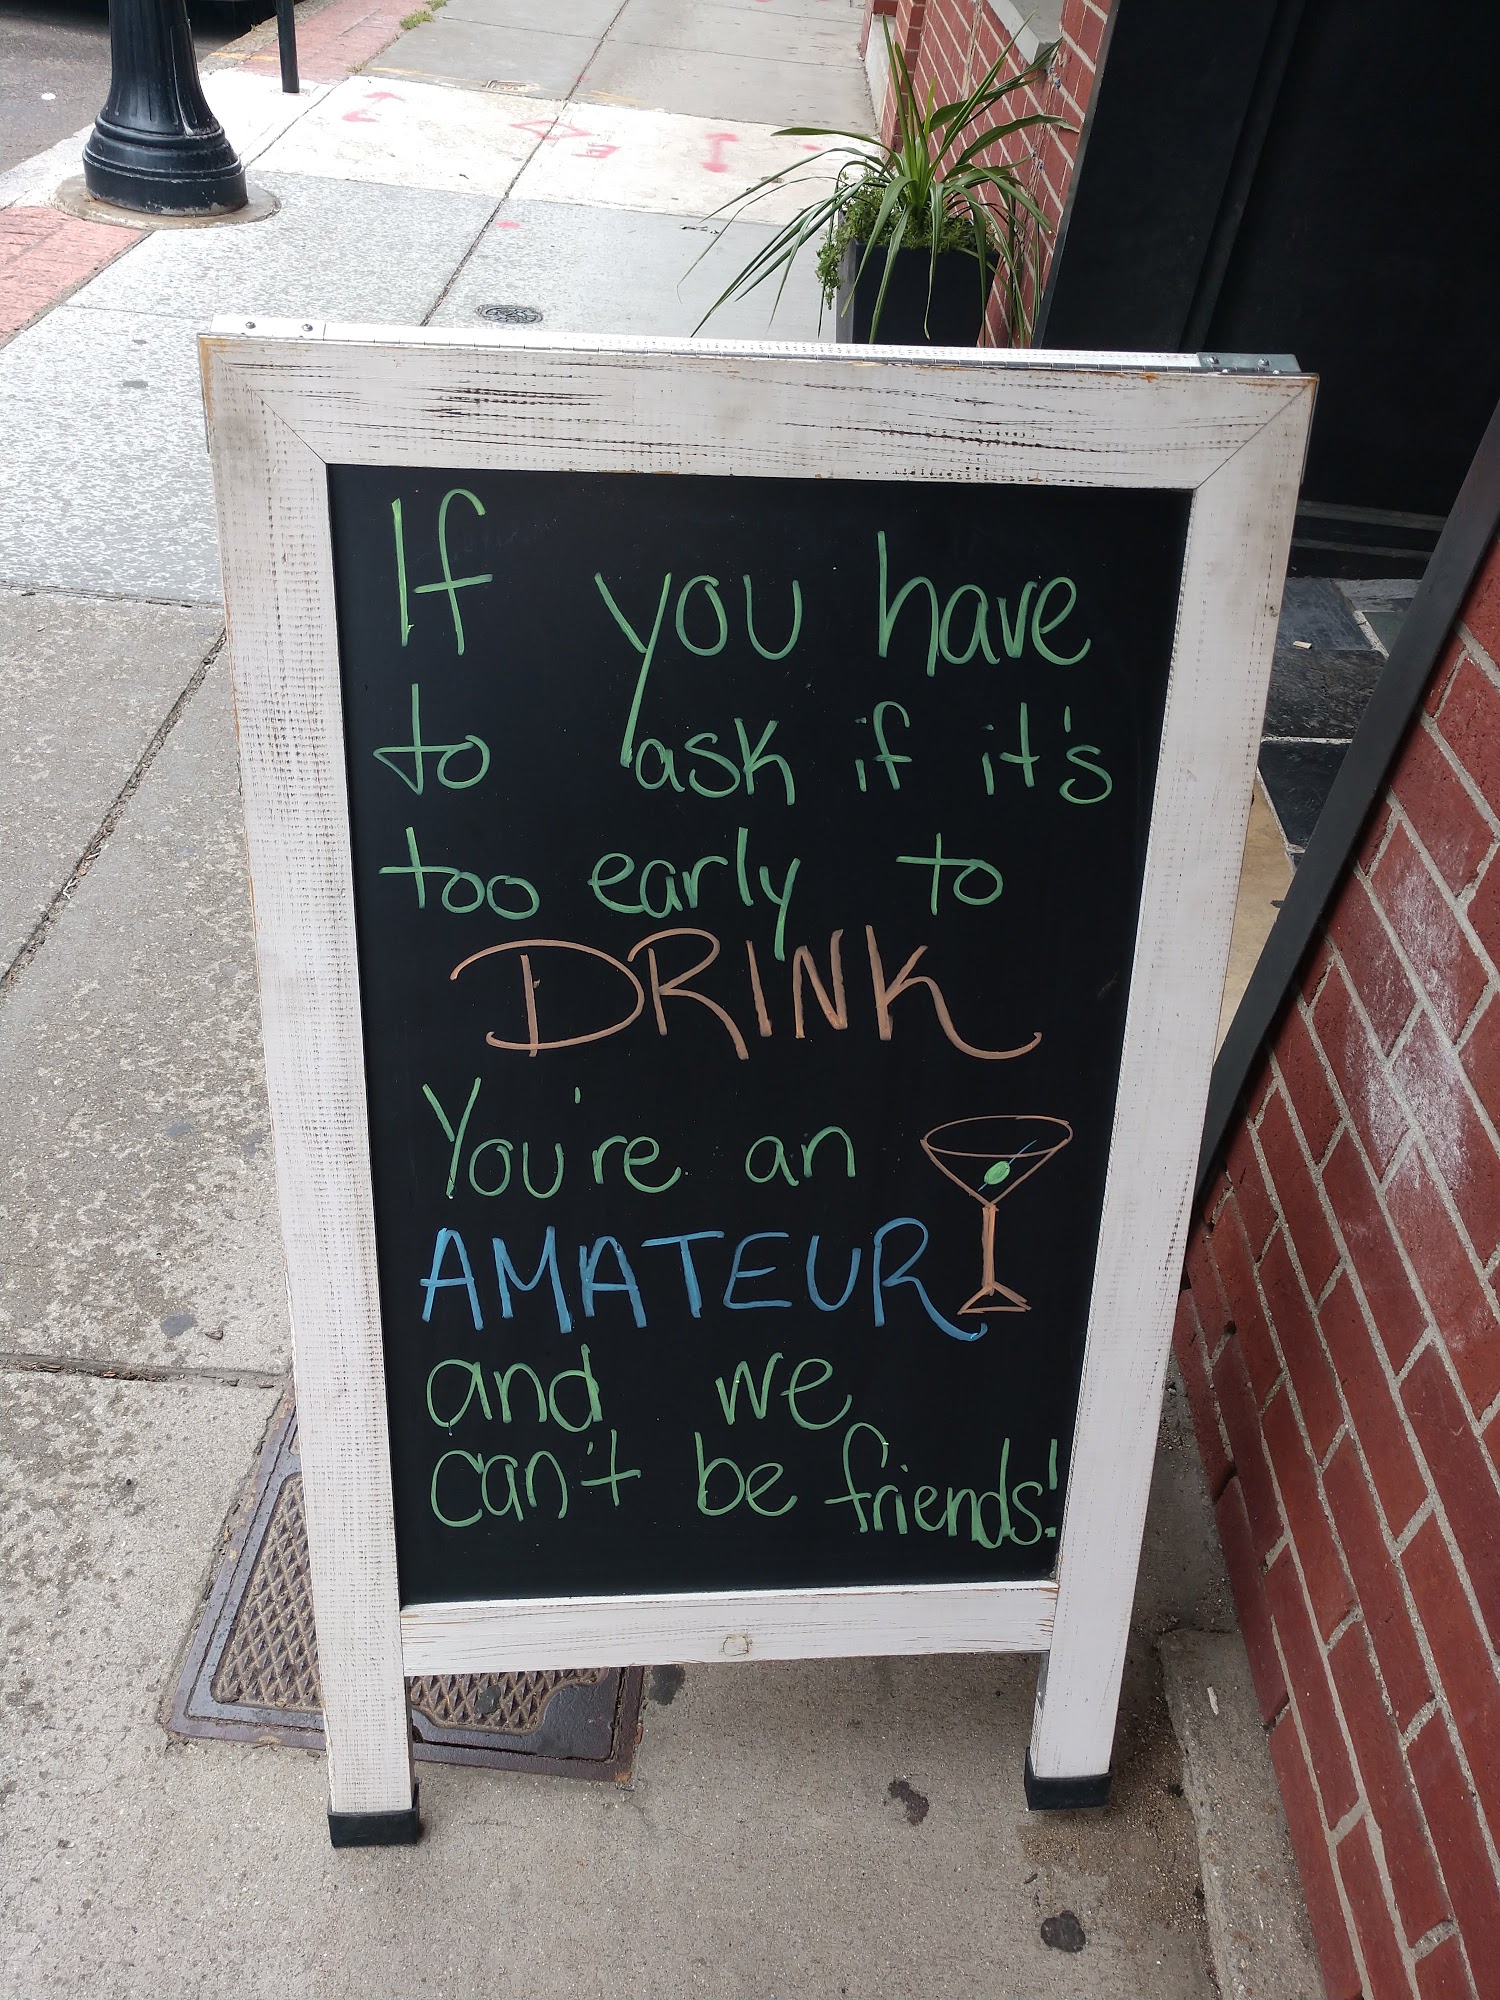 If you have
to ask if it's
too early to
DRINK
You're an
AMATEUR
and we
can't be friends!